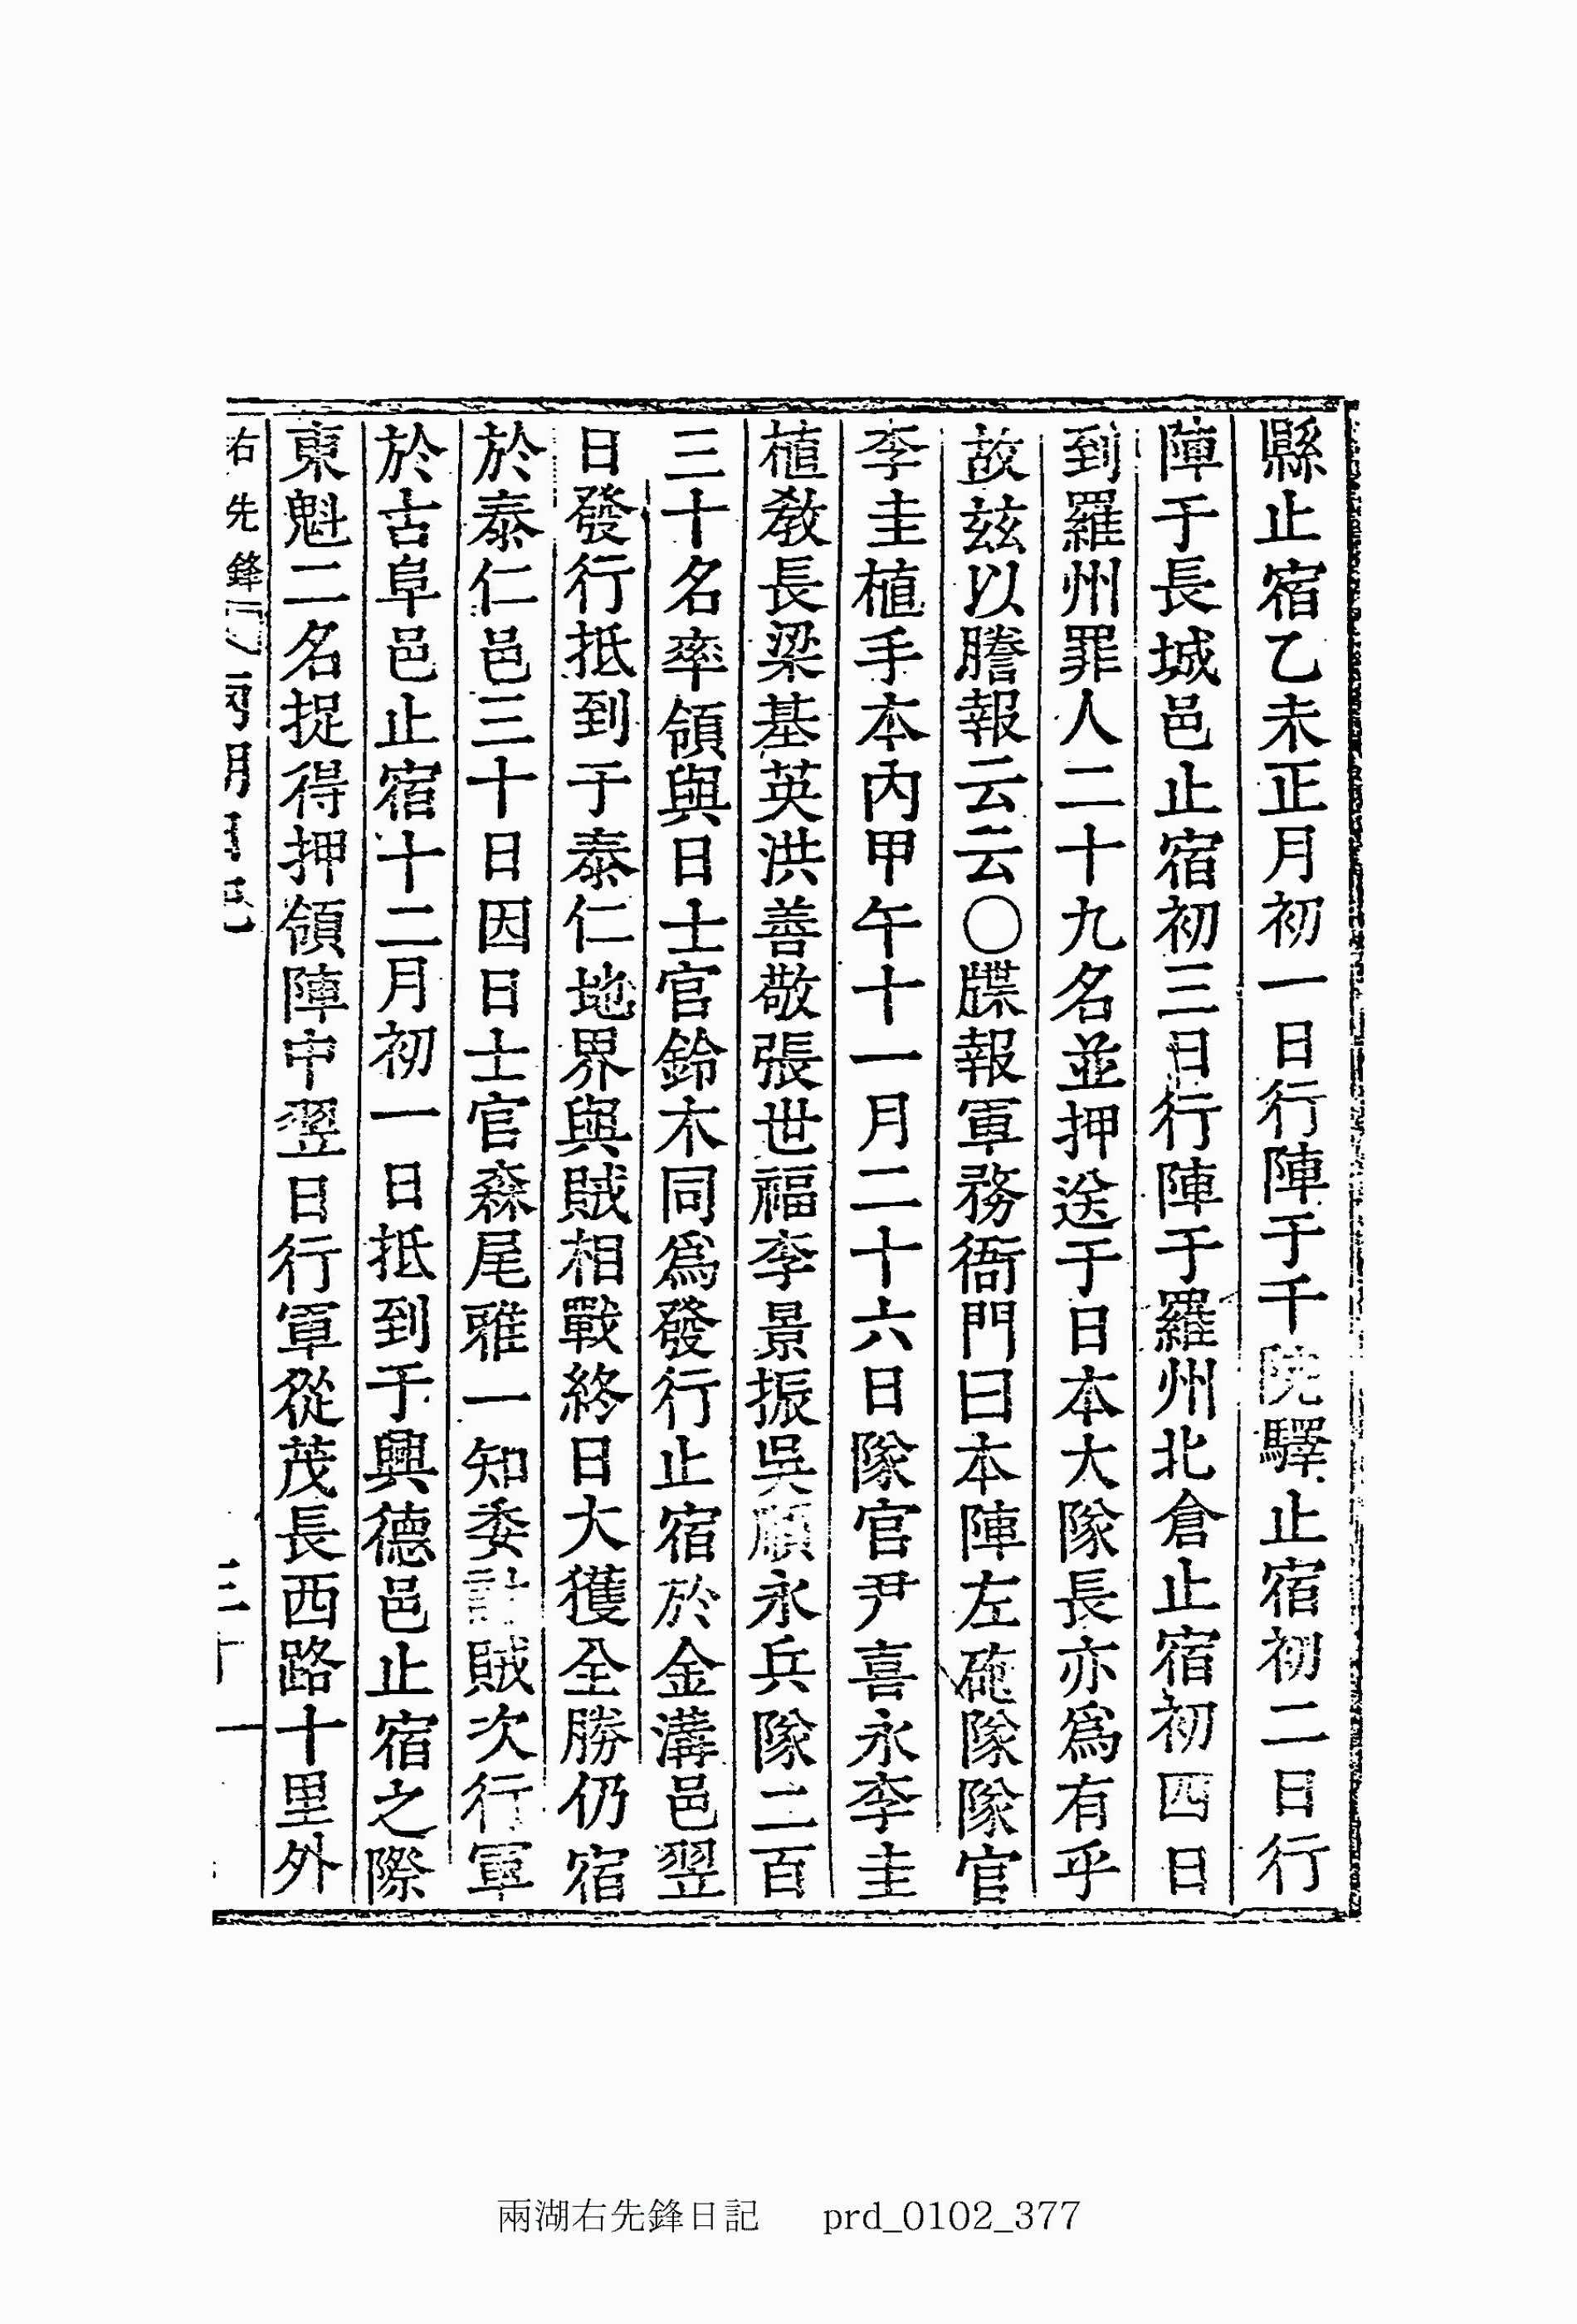 縣止宿乙未正月初一日行陣于千院驛止宿初二日行
陣于長城邑止宿初三日行陣于羅州北倉止宿初四日
到羅州罪人二十九名並押送于日本大隊長亦爲有乎
故玆以謄報云云○牒報軍務衙門曰本陣左砲隊隊官
李圭植手本內甲午十一月二十六日隊官尹喜永李圭
植敎長梁基英洪善敬張世福李景振吳順永兵隊二百
三十名率領與日士官鈴木同爲發行止宿於金溝邑翌
日發行抵到于泰仁地界與賊相戰終日大獲全勝仍宿
於泰仁邑三十日因日士官森尾雅一知委討賊次行軍
於古阜邑止宿十二月初一日抵到于興德邑止宿之際
東魁二名捉得押領陣中翌日行軍從茂長西路十里外
右先鋒 兩湖日記 三十一
兩湖右先鋒日記 prd_0102_377